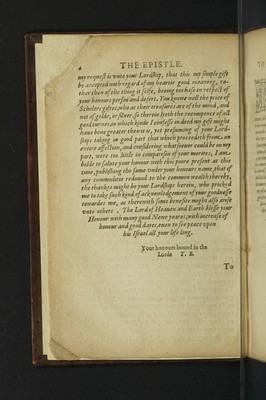 THE EPISTLE.
my request is vnto your Lordship, that this my simple gift
be accepted with regard of my heartie good meaning, ra-
ther then of the thing it selfe, beeing too base in respect of
your honours person and desert. You knowe well the price of
Schollers giftes, who as their treasures are of the mind, and
not of golde, or siluer, so therein lyeth the recompence of all
good turnes, in which kinde I confesse in deed my gift might
haue bene greater then it is, yet presuming of your Lord-
ships taking in good part that which proceedeth from an
entire affection, and considering what soeuer could be on my
part, were too little in comparison of your worthines, I am
bolde to salute your honour with this poore present at this
time, publishing the same vnder your honours name, that if
any commoditie redound to the common wealth thereby,
the thankes might be your Lordships herein, who pricked
me to take such kind of acknowledgement of your goodnesse
towardes me, as therewith some benefite might also arise
vnto others. The Lord of Heauen and Earth blesse your
Honour with many good Newe yeares, with increase of
honour and good dayes, euen to see peace vpon
his Israel all your life long.
Your honours bound in the
Lorde T. B.
To